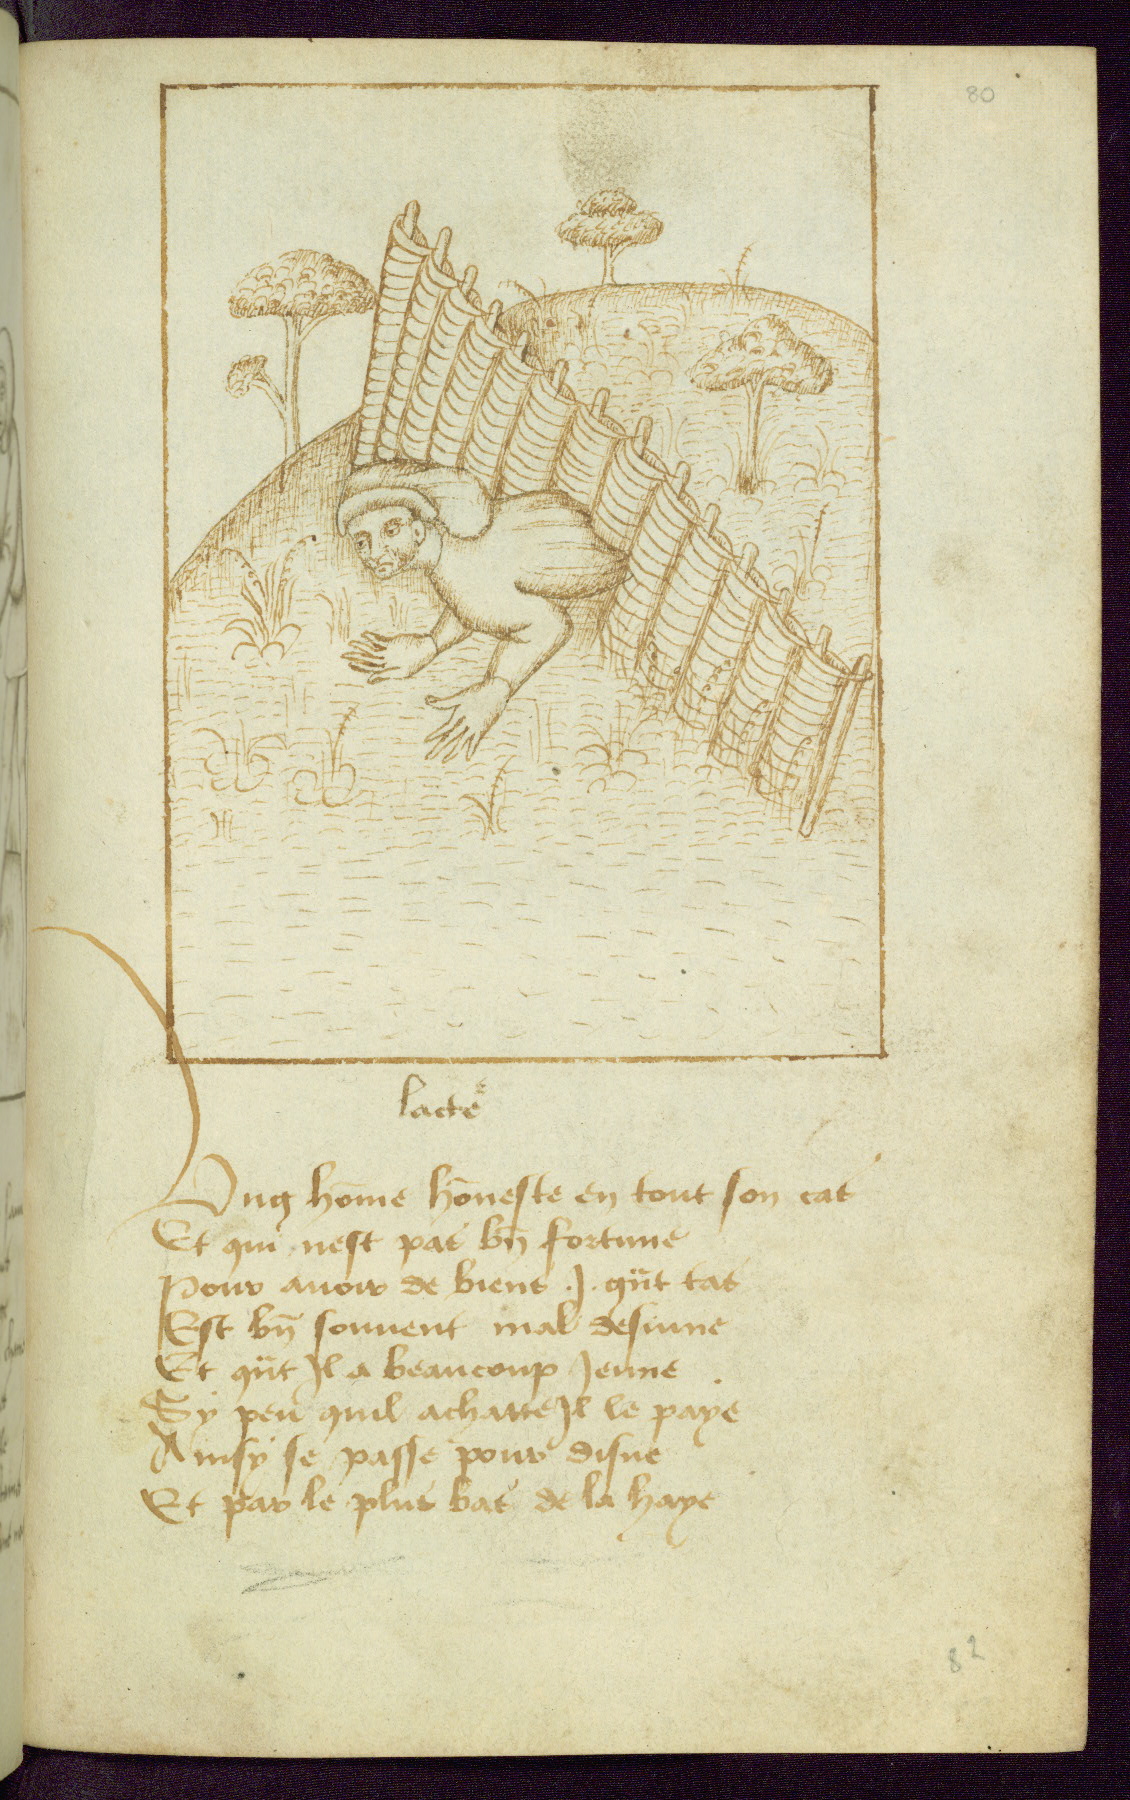 80
lacteᵉ
Ung hōme hōneste en tout son cas
Et qui nest pas bn̄ fortune
Pour auoir de biens .J. grāt tas
Est bn̄ souuent mal desiune
Et quāt Jl a beaucoup Jeune
Sy peu quil achatte Jl le paye
Ainsy se passe pour disne
Et par le plus bas de la haye
82